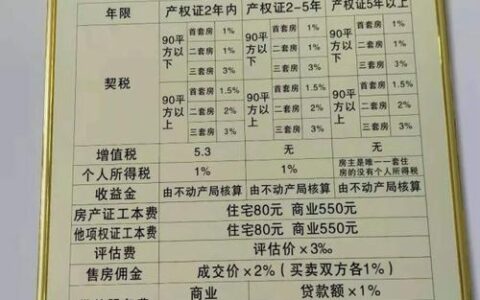 年限 产权证2年内 产权证2-5年 产权证5年以上
契税 90平方以下 首套房 1% 90平方以下 首套房 1% 90平方以下 首套房 1%
二套房 1% 二套房 1% 二套房 1%
三套房 3% 三套房 3% 三套房 3%
90平方以上 首套房 1.5% 90平方以上 首套房 1.5% 90平方以上 首套房 1.5%
二套房 2% 二套房 2% 二套房 2%
三套房 3% 三套房 3% 三套房 3%
增值税 5.3 无 无
个人所得税 1% 1% 房主是唯一一套住房的没有个人所得税
收益金 由不动产局核算 由不动产局核算 由不动产局核算
房产证工本费 住宅80元 商业550元
他项权证工本费 住宅80元 商业550元
评估费 评估价×3‰
售房佣金 成交价×2%(买卖双方各1%)
商业 贷款额×1%